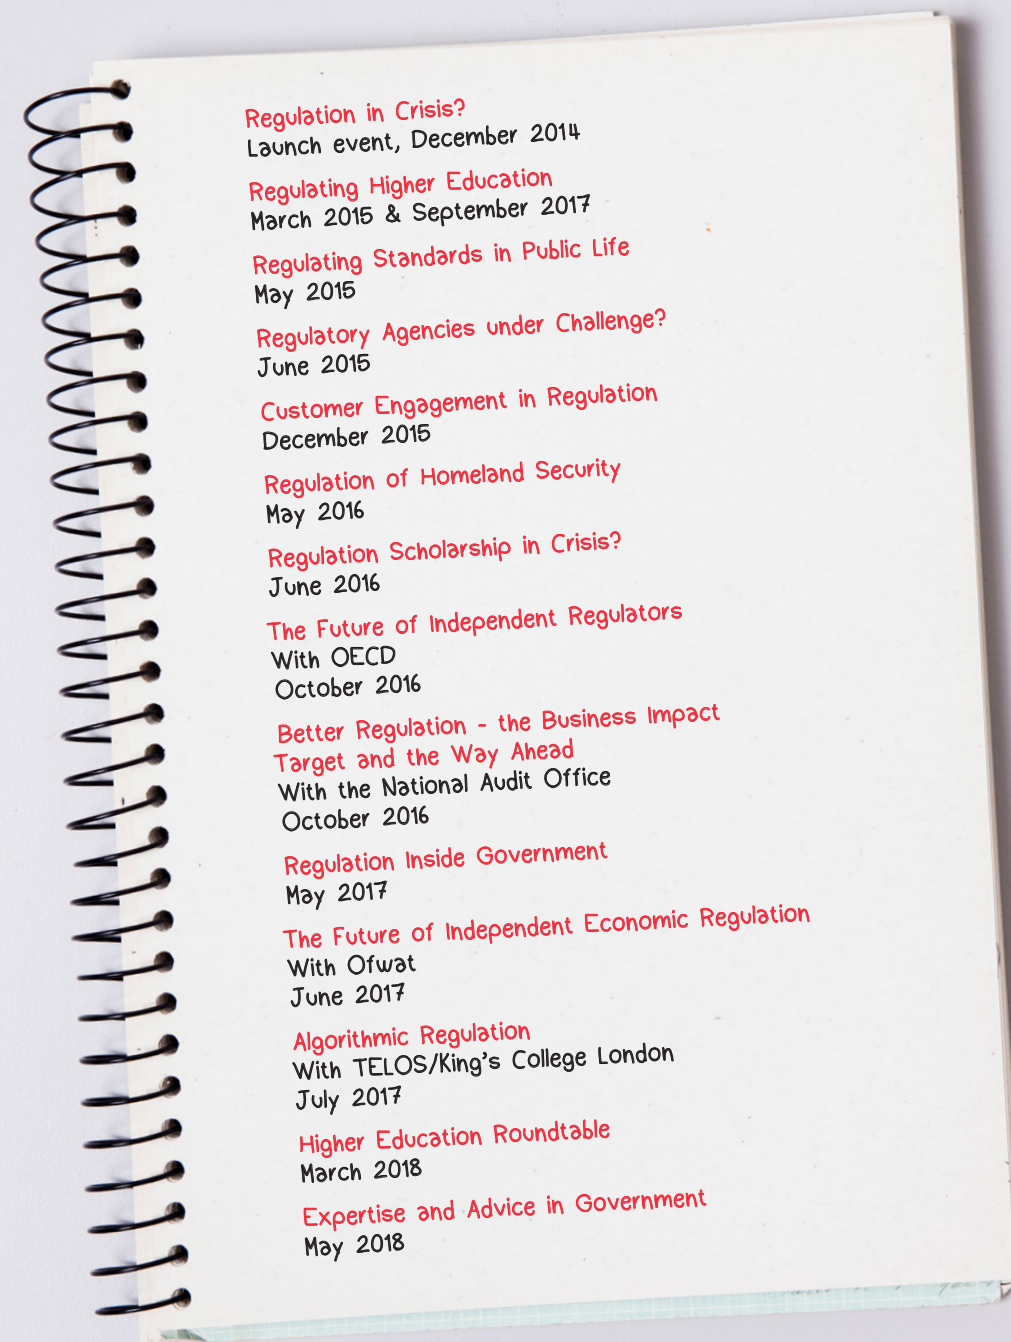 Regulation in Crisis?
Launch event, December 2014
Regulating Higher Education
March 2015 & September 2017
Regulating Standards in Public Life
May 2015
Regulatory Agencies under Challenge?
June 2015
Customer Engagement in Regulation
December 2015
Regulation of Homeland Security
May 2016
Regulation Scholarship in Crisis?
June 2016
The Future of Independent Regulators
With OECD
October 2016
Better Regulation - the Business Impact
Target and the Way Ahead
With the National Audit Office
October 2016
Regulation Inside Government
May 2017
The Future of Independent Economic Regulation
With Ofwat
June 2017
Algorithmic Regulation
With TELOS/King's College London
July 2017
Higher Education Roundtable
March 2018
Expertise and Advice in Government
May 2018